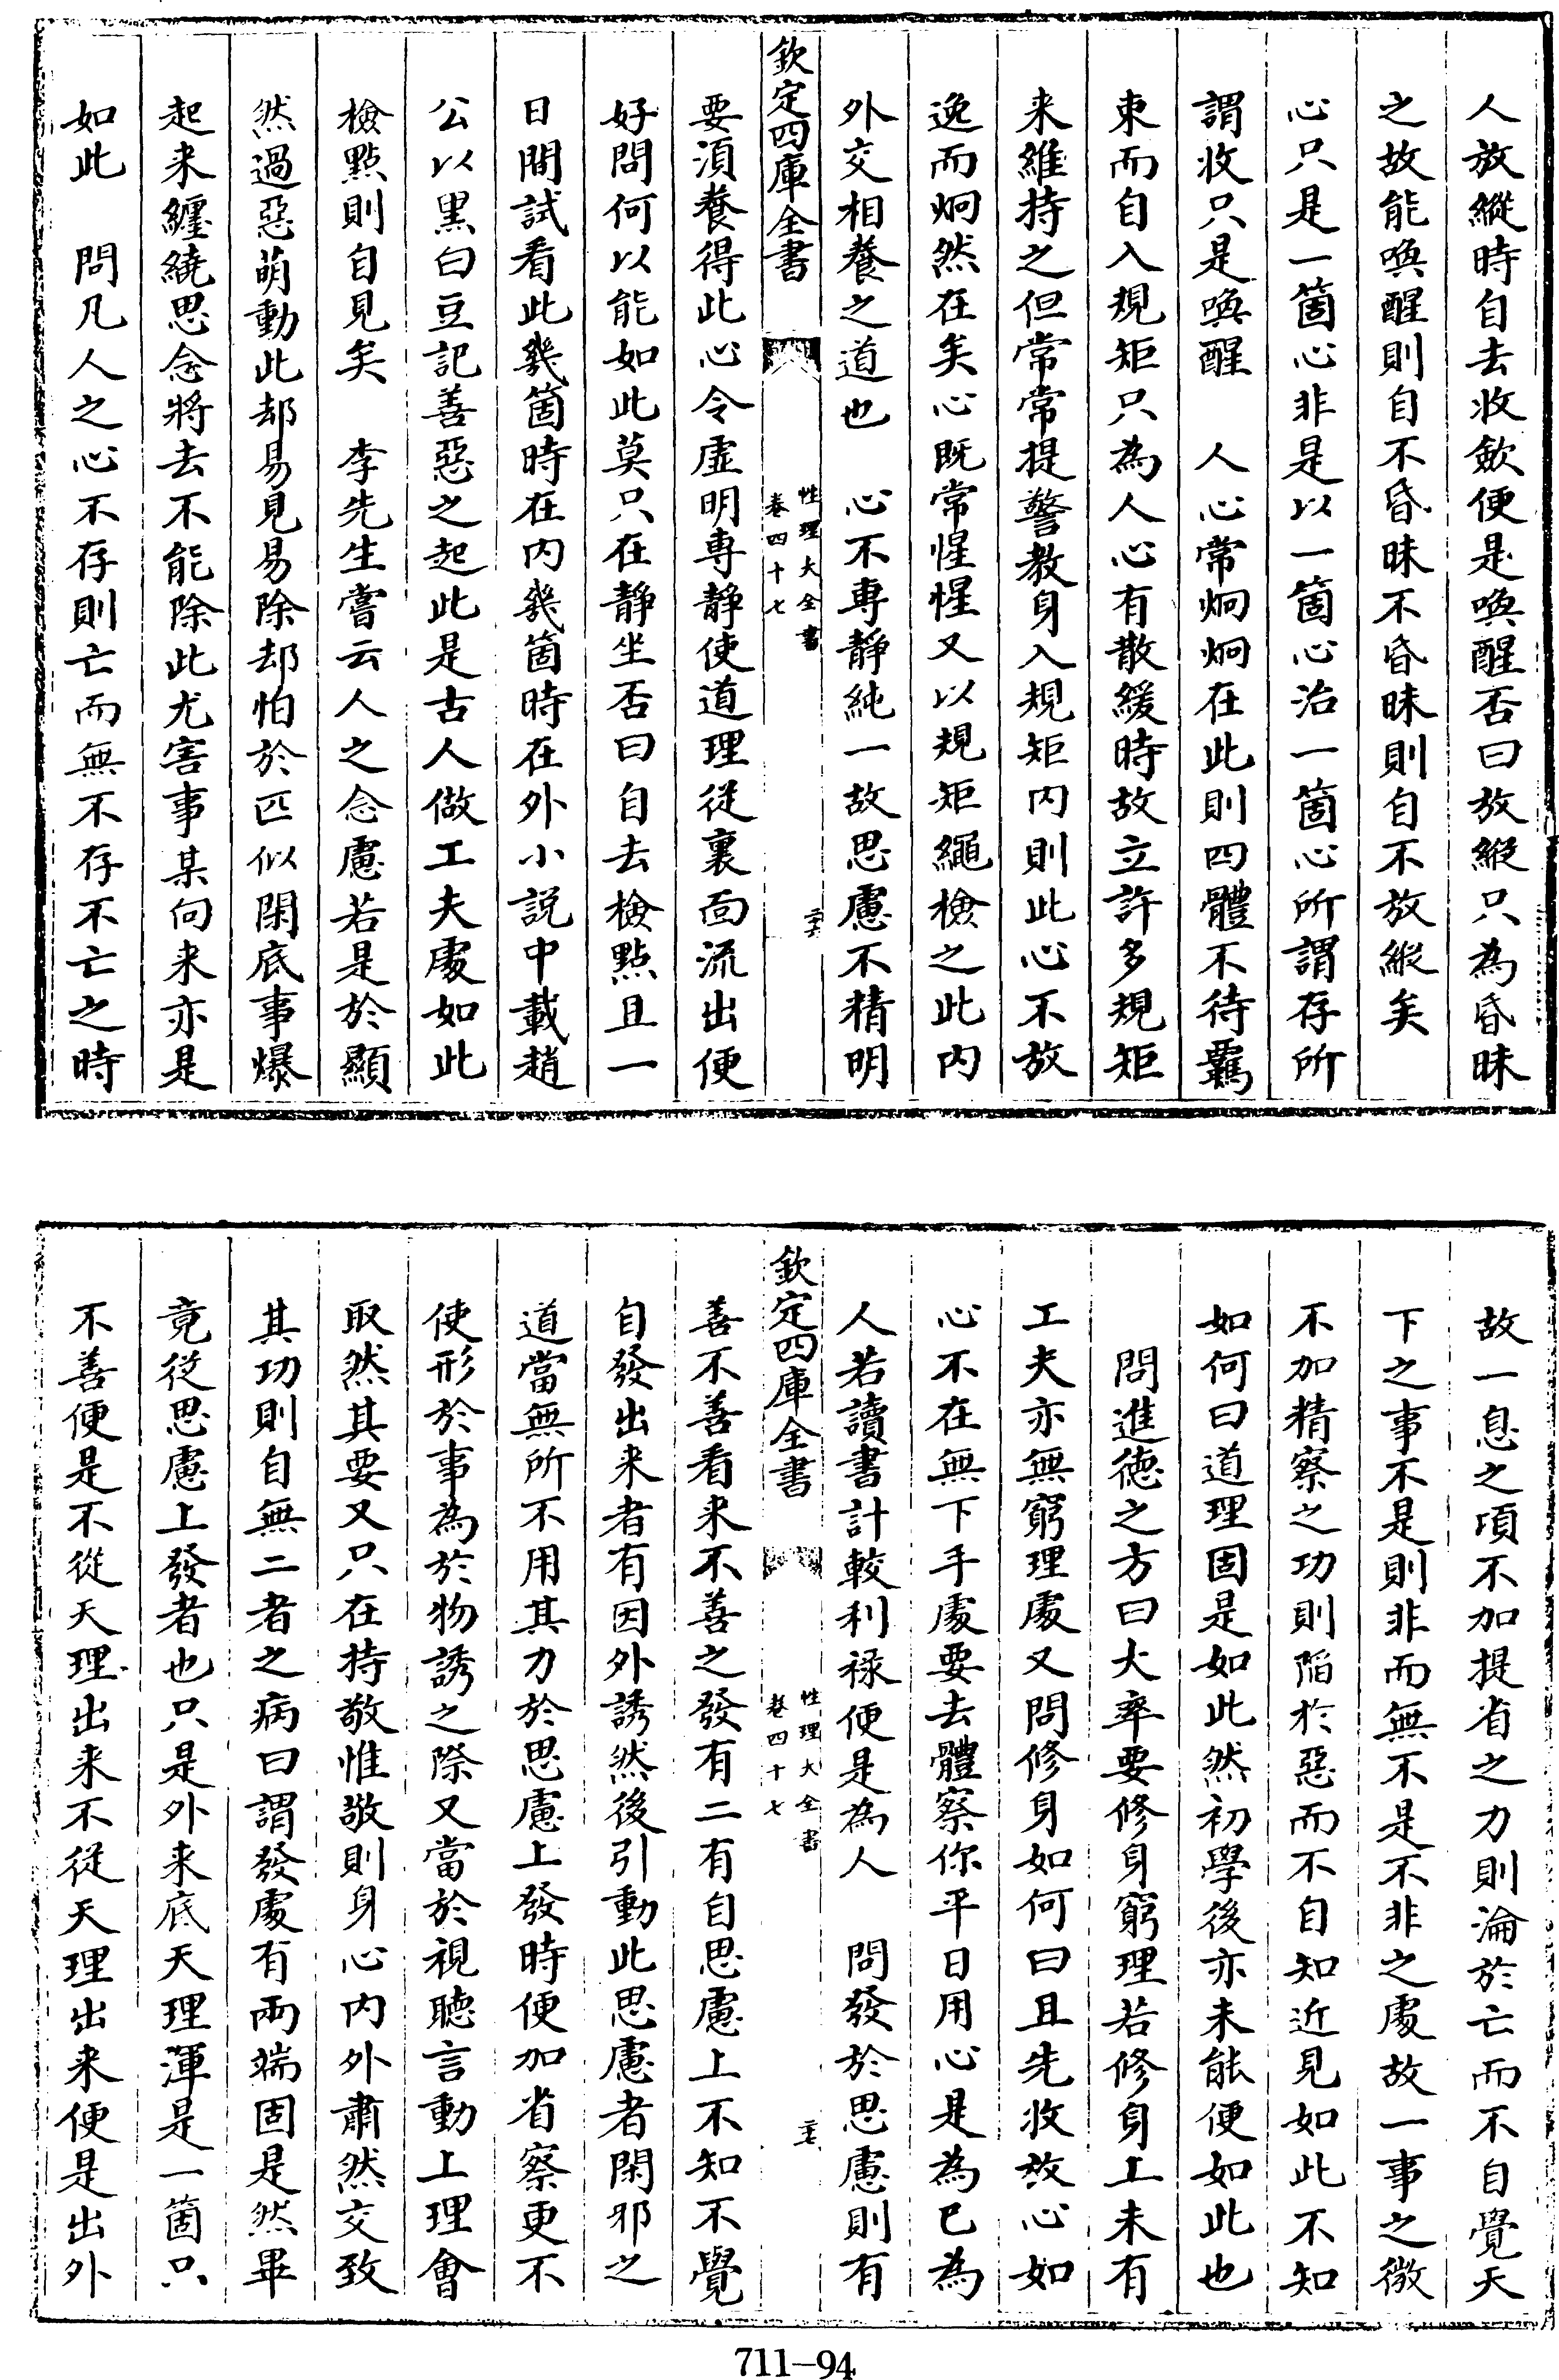 人放縱時自去收歛便是喚醒否曰放縱只為昏昧
之故能喚醒則自不昏昧不昏昧則自不放縱矣
心只是一箇心非是以一箇心治一箇心所謂存所
謂收只是喚醒　人心常炯炯在此則四體不待羈
束而自入規矩只為人心有散緩時故立許多規矩
来維持之但常常提警教身入規矩内則此心不放
逸而炯然在矣心既常惺惺又以規矩繩檢之此内
外交相養之道也　心不專靜純一故思慮不精明
欽定四庫全書
性理大全書
卷四十七
二十六
要須養得此心令虛明專靜使道理從裏面流出便
好問何以能如此莫只在靜坐否曰自去檢點且一
日間試看此幾箇時在内幾箇時在外小説中載趙
公以黒白豆記善惡之起此是古人做工夫處如此
檢點則自見矣　李先生嘗云人之念慮若是於顯
然過惡萌動此却易見易除却怕於匹似閑底事爆
起来纏繞思念將去不能除此尤害事某向来亦是
如此　問凡人之心不存則亡而無不存不亡之時
故一息之頃不加提省之力則淪於亡而不自覺天
下之事不是則非而無不是不非之處故一事之微
不加精察之功則陷於惡而不自知近見如此不知
如何曰道理固是如此然初學後亦未能便如此也
問進德之方曰大率要修身窮理若修身上未有
工夫亦無窮理處又問修身如何曰且先收放心如
心不在無下手處要去體察你平日用心是為己為
人若讀書計較利祿便是為人　問發於思慮則有
欽定四庫全書
性理大全書
卷四十七
二十七
善不善看来不善之發有二有自思慮上不知不覺
自發出来者有因外誘然後引動此思慮者閑邪之
道當無所不用其力於思慮上發時便加省察更不
使形於事為於物誘之際又當於視聽言動上理會
取然其要又只在持敬惟敬則身心内外肅然交致
其功則自無二者之病曰謂發處有兩端固是然畢
竟從思慮上發者也只是外来底天理渾是一箇只
不善便是不從天理出来不從天理出来便是出外
711-94